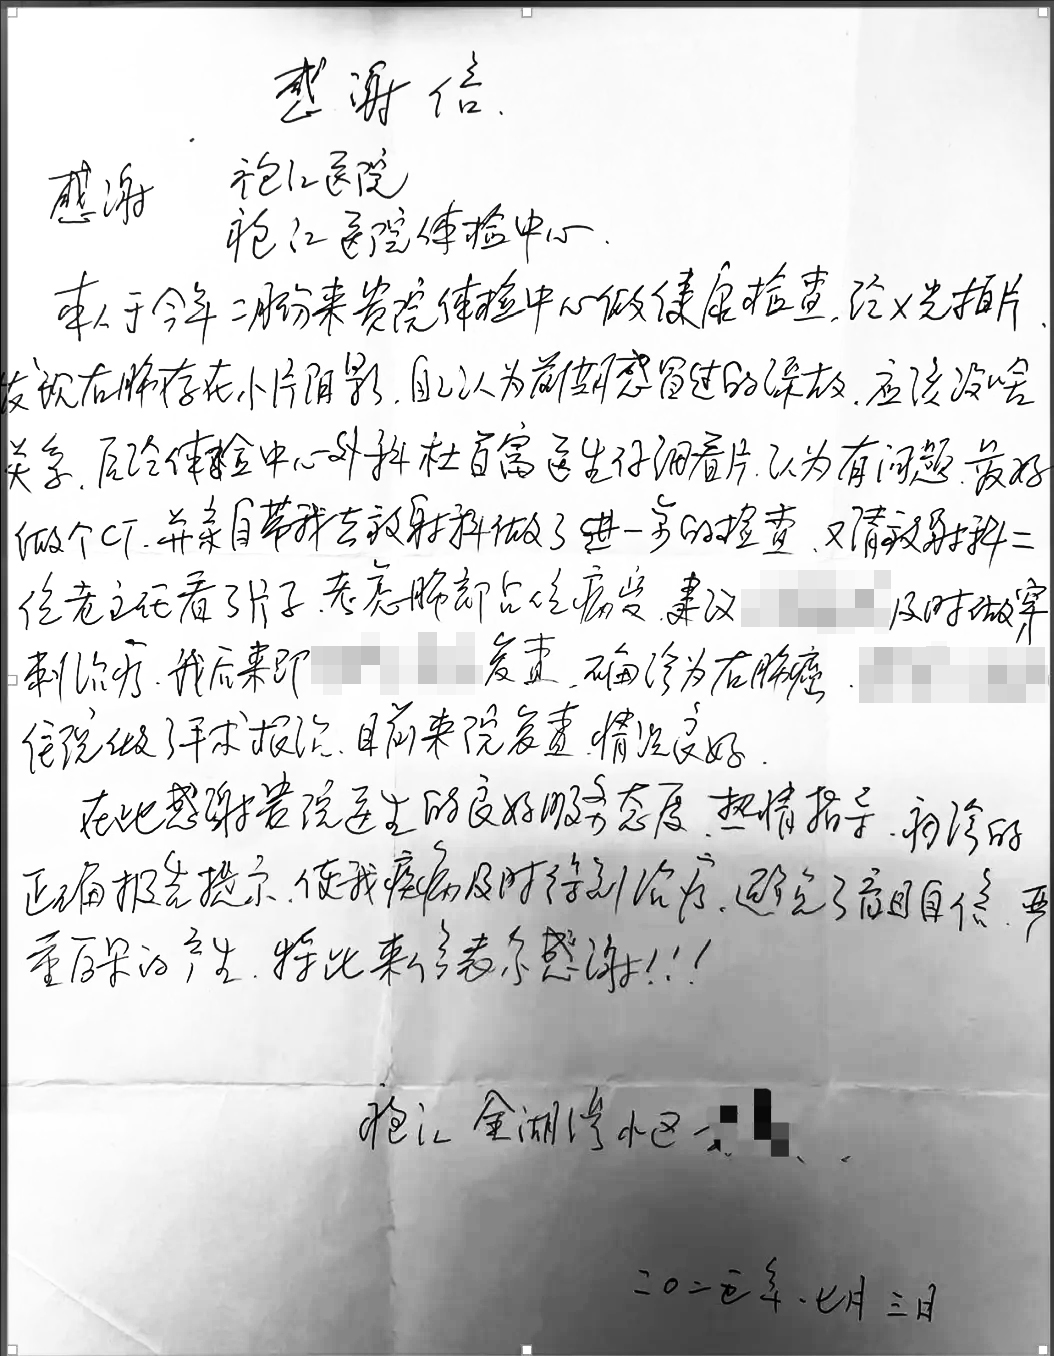 感谢信.
感谢 袍江医院
袍江医院体检中心.
本人于今年二月份来贵院体检中心做健康检查,经X光拍片,
发现右肺存在小片阴影,自己认为前期感冒过的缘故,应该没啥
关系,后经体检中心外科杜百富医生仔细看片,认为有问题,最好
做个CT,并亲自带我去放射科做了进一步的检查,又请放射科二
位老主任看了片子,考虑肺部占位病变,建议 及时做穿
刺治疗,我后来即 复查,确诊为右肺癌,
住院做了手术根治,目前来院复查,情况良好.
在此感谢贵院医生的良好服务态度,热情指导,初诊的
正确报告提示,使我疾病及时得到治疗,避免了盲目自信,严
重后果的产生,特此来信表示感谢!!!
袍江金湖湾小区
二〇二五年.七月三日